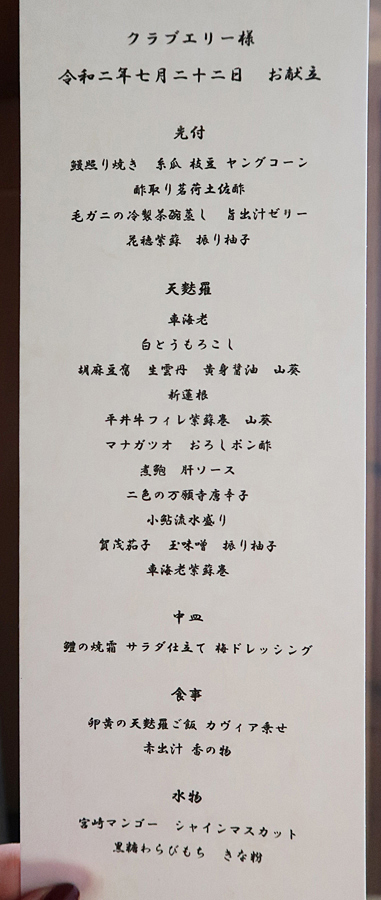 クラブエリー様
令和二年七月二十二日　お献立
先付
鰻照り焼き　糸瓜 枝豆 ヤングコーン
酢取り茗荷土佐酢
毛ガニの冷製茶碗蒸し　旨出汁ゼリー
花穂紫蘇　振り柚子
天麩羅
車海老
白とうもろこし
胡麻豆腐　生雲丹　黄身醤油　山葵
新蓮根
平井牛フィレ紫蘇巻　山葵
マナガツオ　おろしポン酢
煮鮑　肝ソース
二色の万願寺唐辛子
小鮎流水盛り
賀茂茄子　玉味噌　振り柚子
車海老紫蘇巻
中皿
鱧の焼霜 サラダ仕立て 梅ドレッシング
食事
卵黄の天麩羅ご飯 カヴィア乗せ
赤出汁 香の物
水物
宮崎マンゴー　シャインマスカット
黒糖わらびもち　きな粉